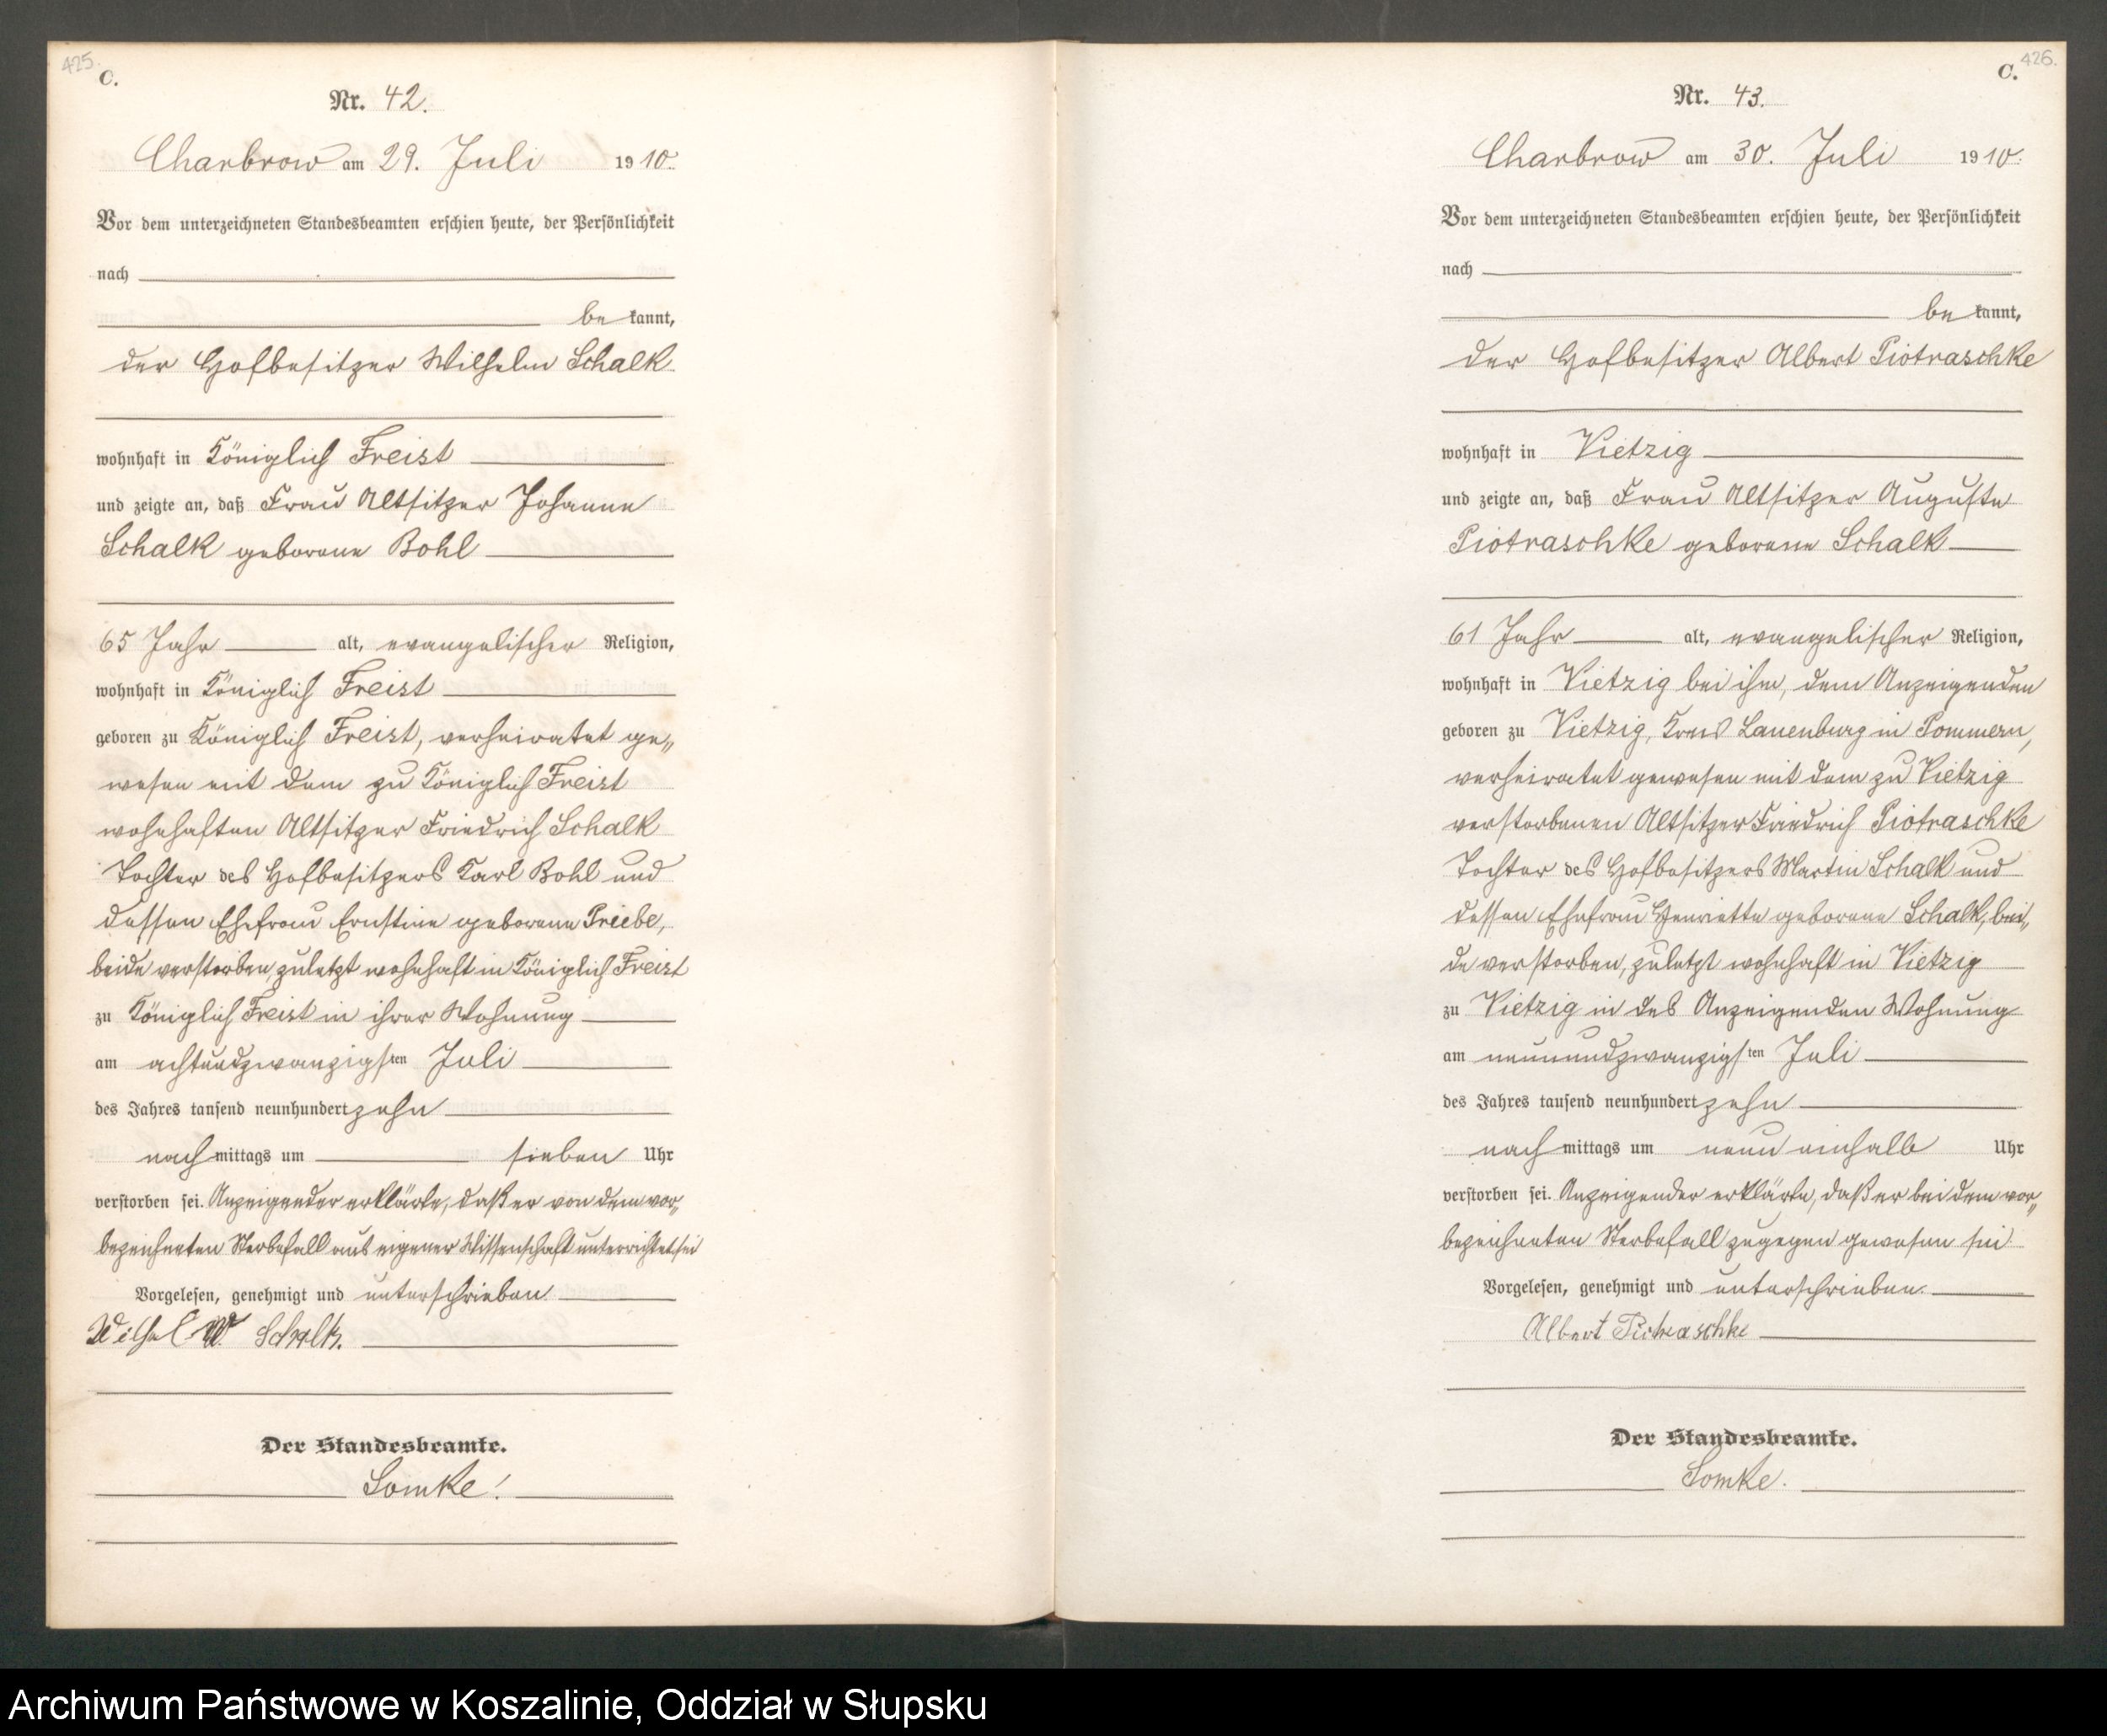 425.
C.
Nr. 42.
Charbrow am 29. Juli 1910.
Vor dem unterzeichneten Standesbeamten erschien heute, der Persönlichkeit
nach
be kannt,
der Hofbesitzer Wilhelm Schalk
wohnhaft in Königlich Freist
und zeigte an, daß Frau Altsitzer Johanne
Schalk geborene Bohl
65 Jahr alt, evangelischer Religion,
wohnhaft in Königlich Freist
geboren zu Königlich Freist, verheiratet ge„
wesen mit dem zu Königlich Freist
wohnhaften Altsitzer Friedrich Schalk
Tochter des Hofbesitzers Karl Bohl und
dessen Ehefrau Ernstine geborene Priebe,
beide verstorben, zuletzt wohnhaft in Königlich Freist
zu Königlich Freist in ihrer Wohnung
am achtundzwanzigsten Juli
des Jahres tausend neunhundert zehn
nach mittags um sieben Uhr
verstorben sei. Anzeigender erklärte, daß er von dem vor„
bezeichneten Sterbefall aus eigener Wissenschaft unterrichtet sei
Vorgelesen, genehmigt und unterschrieben
Wilhel W. Schalk.
Der Standesbeamte.
Lomke.
426.
C.
Nr. 43.
Charbrow am 30. Juli 1910.
Vor dem unterzeichneten Standesbeamten erschien heute, der Persönlichkeit
nach
be kannt,
der Hofbesitzer Albert Piotraschke
wohnhaft in Vietzig
und zeigte an, daß Frau Altsitzer Auguste
Piotraschke geborene Schalk
61 Jahr alt, evangelischer Religion,
wohnhaft in Vietzig bei ihm, dem Anzeigenden
geboren zu Vietzig, Kreis Lauenburg in Pommern,
verheiratet gewesen mit dem zu Vietzig
verstorbenen Altsitzer Friedrich Piotraschke
Tochter des Hofbesitzers Martin Schalk und
dessen Ehefrau Henriette geborene Schalk, bei„
de verstorben, zuletzt wohnhaft in Vietzig
zu Vietzig in des Anzeigenden Wohnung
am neunundzwanzigsten Juli
des Jahres tausend neunhundert zehn
nach mittags um neun einhalb Uhr
verstorben sei. Anzeigender erklärte, daß er bei dem vor„
bezeichneten Sterbefall zugegen gewesen sei
Vorgelesen, genehmigt und unterschrieben.
Albert Piotraschke
Der Standesbeamte.
Lomke.
Archiwum Państwowe w Koszalinie, Oddział w Słupsku